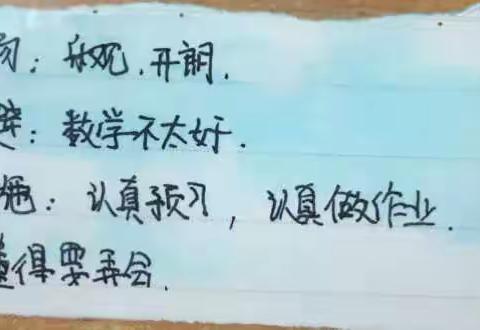 ：乐观、开朗．
：数学不太好．
施：认真预习，认真做作业．
懂得要弄会．